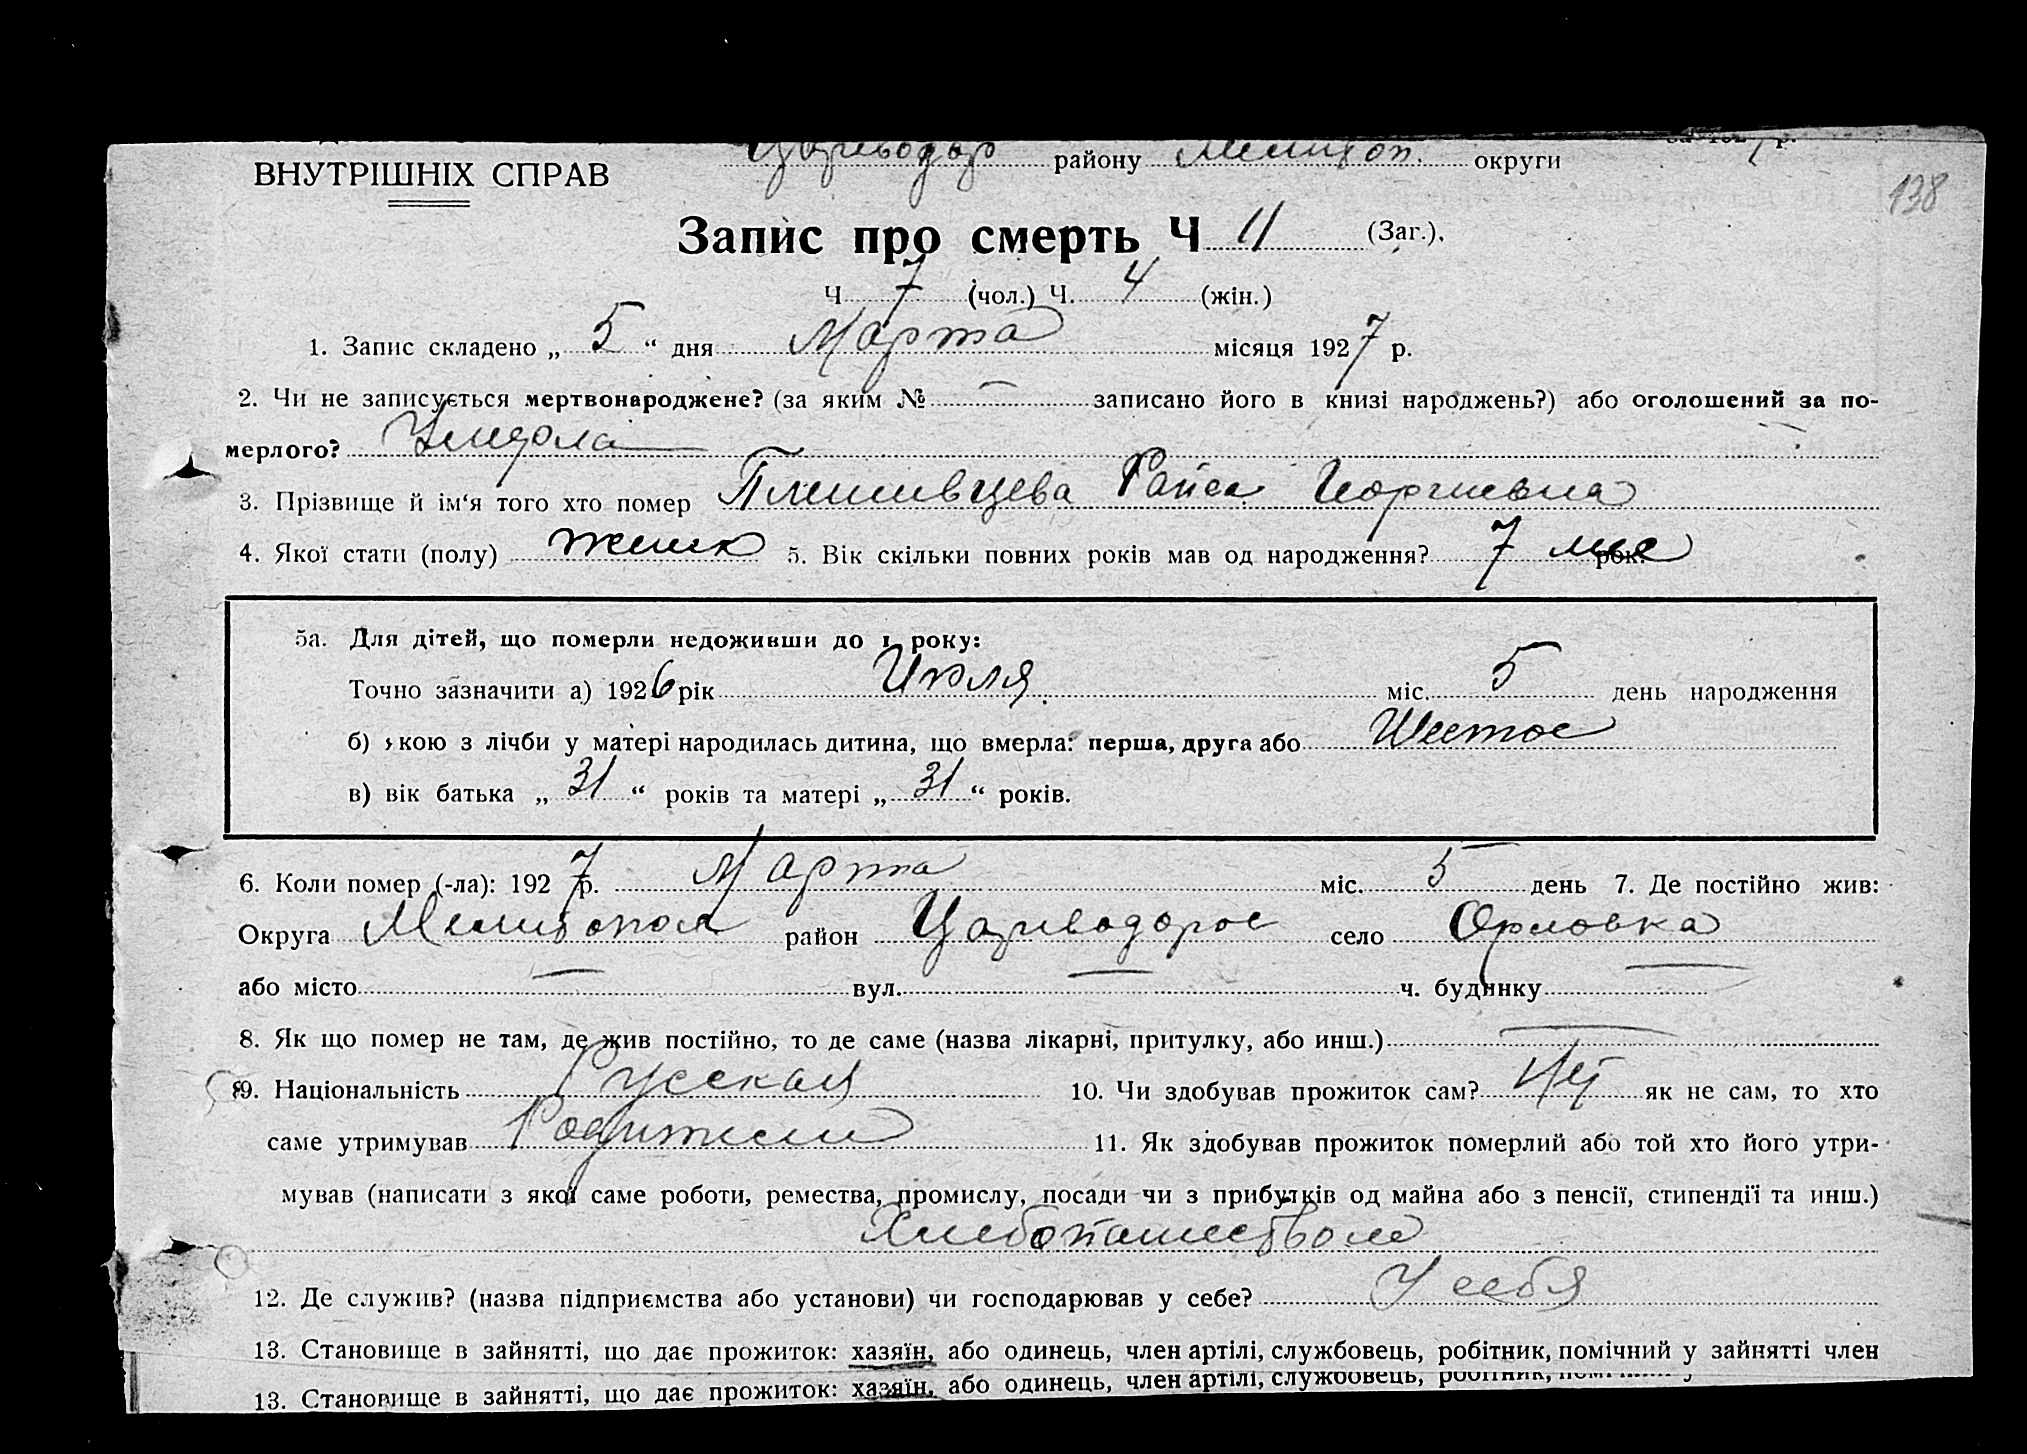 ВНУТРІШНІХ СПРАВ району Мелитоп. округи
138
Запис про смерть Ч 11 (Заг.).
Ч 7 (чол.) Ч. 4 (жін.)
1. Запис складено „ 5 “ дня Марта місяця 1927 р.
2. Чи не записується мертвонароджене? (за яким № — записано його в книзі народжень?) або оголошений за по-
мерлого? Умерла
3. Прізвище й ім‘я того хто помер Плешивцева Раиса Георгиевна
4. Якої стати (полу) женск 5. Вік скільки повних років мав од народження? 7 мес рок.
5а. Для дітей, що померли недоживши до 1 року:
Точно зазначити а) 1926 рік Июля міс. 5 день народження
б) якою з лічби у матері народилась дитина, що вмерла: перша, друга або Шестое
в) вік батька „ 31 “ років та матері „ 31 “ років.
6. Коли помер (-ла): 1927 р. Марта міс. 5 день 7. Де постійно жив:
Округа Мелитопол район Цареводарос село Орловка
або місто — вул. — ч. будинку —
8. Як що помер не там, де жив постійно, то де саме (назва лікарні, притулку, або инш.) —
9. Національність Русская 10. Чи здобував прожиток сам? Нет як не сам, то хто
саме утримував Родители 11. Як здобував прожиток померлий або той хто його утри-
мував (написати з якої саме роботи, ремества, промислу, посади чи з прибутків од майна або з пенсії, стипендії та инш.)
Хлебопашеством
12. Де служив? (назва підприємства або установи) чи господарював у себе? У себя
13. Становище в зайнятті, що дає прожиток: хазяїн, або одинець, член артілі, службовець, робітник, помічний у зайнятті член
13. Становище в зайнятті, що дає прожиток: хазяїн, або одинець, член артілі, службовець,